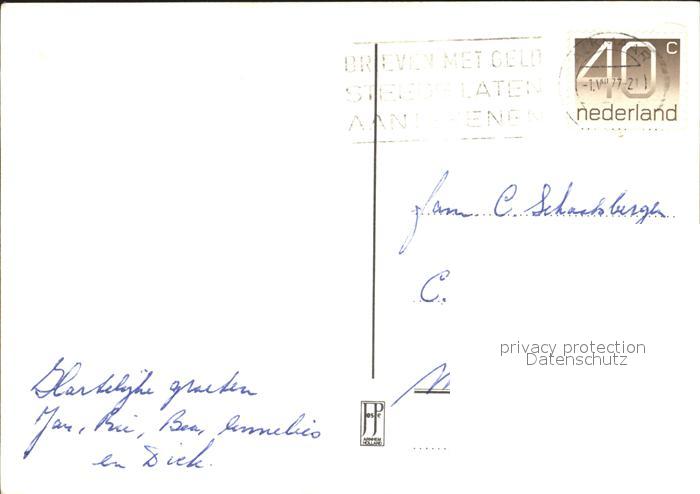 BRIEVEN MET GELD
STEEDS LATEN
AANTEKENEN
40 c
nederland
Fam C. Schaaksberger
C.
privacy protection
Datenschutz
Hartelijke groeten
Jan, Rie, Bea, Annelies
en Dick.
ARNHEM
HOLLAND